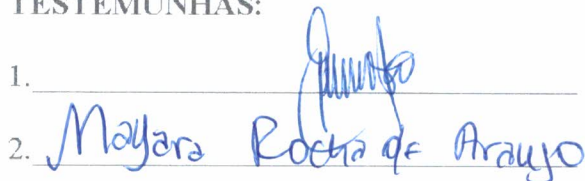 TESTEMUNHAS:
1.
2. Mayara Rocha de Araujo